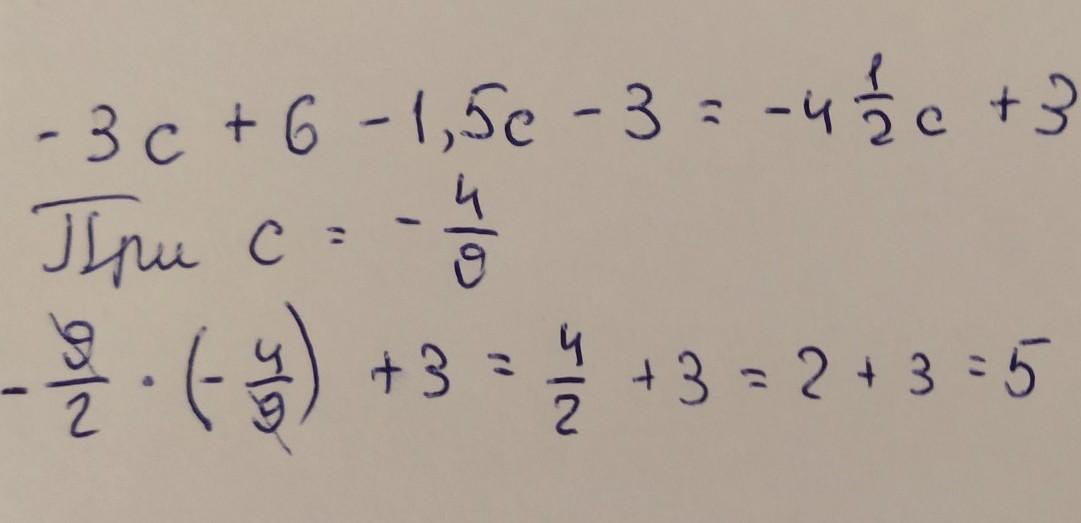 -3c + 6 - 1,5c - 3 = -4 1/2 c + 3
При c = - 4/9
- 9/2 · (- 4/9) + 3 = 4/2 + 3 = 2 + 3 = 5